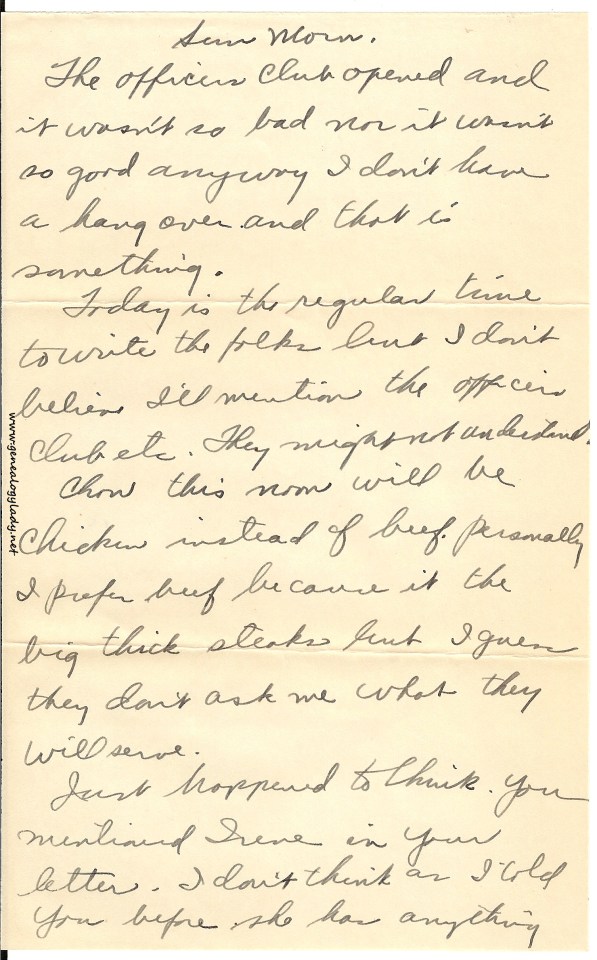 Sun Morn.
The officers Club opened and
it wasn't so bad nor it wasn't
so good anyway I don't have
a hang over and that is
something.
Today is the regular time
to write the folks but I don't
believe I'll mention the officers
Club etc. They might not understand.
Chow this noon will be
Chicken instead of beef. personally
I prefer beef because it the
big thick steaks but I guess
they don't ask me what they
will serve.
Just happened to think. You
mentioned Irene in your
letter. I don't think as I told
you before she has anything
www.genealogylady.net